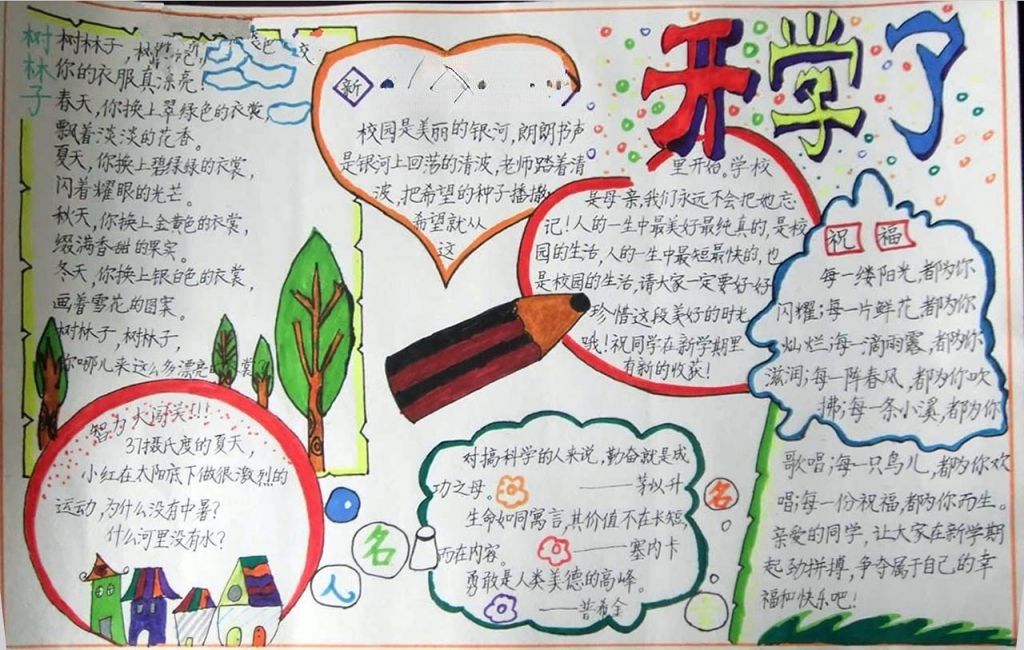 开学了
树林子
树林子,
你的衣服真漂亮!
春天,你换上翠绿色的衣裳,
飘着淡淡的花香。
夏天,你换上碧绿绿的衣裳,
闪着耀眼的光芒。
秋天,你换上金黄色的衣裳,
缀满香甜的果实。
冬天,你换上银白色的衣裳,
画着雪花的图案。
树林子,树林子,
你哪儿来这么多漂亮的衣裳?
新
校园是美丽的银河,朗朗书声
是银河上回荡的清波,老师踏着清
波,把希望的种子播撒
希望就从
这
里开始。学校
是母亲,我们永远不会把她忘
记!人的一生中最美好最纯真的,是校
园的生活,人的一生中最短最快的,也
是校园的生活,请大家一定要好好
珍惜这段美好的时光
哦!祝同学在新学期里
有新的收获!
祝福
每一缕阳光,都为你
闪耀;每一片鲜花,都为你
灿烂;每一滴雨露,都为你
滋润;每一阵春风,都为你吹
拂;每一条小溪,都为你
歌唱;每一只鸟儿,都为你欢
唱;每一份祝福,都为你而生。
亲爱的同学,让大家在新学期
起劲拼搏,争夺属于自己的幸
福和快乐吧!
智力大闯关!!!
31摄氏度的夏天,
小红在太阳底下做很激烈的
运动,为什么没有中暑?
什么河里没有水?
名
人
名
对搞科学的人来说,勤奋就是成
功之母。——茅以升
生命如同寓言,其价值不在长短,
而在内容。——塞内卡
勇敢是人类美德的高峰。
——普希金